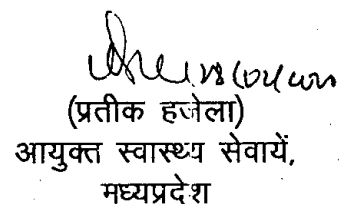 (प्रतीक हजेला)
आयुक्त स्वास्थ्य सेवायें,
मध्यप्रदेश